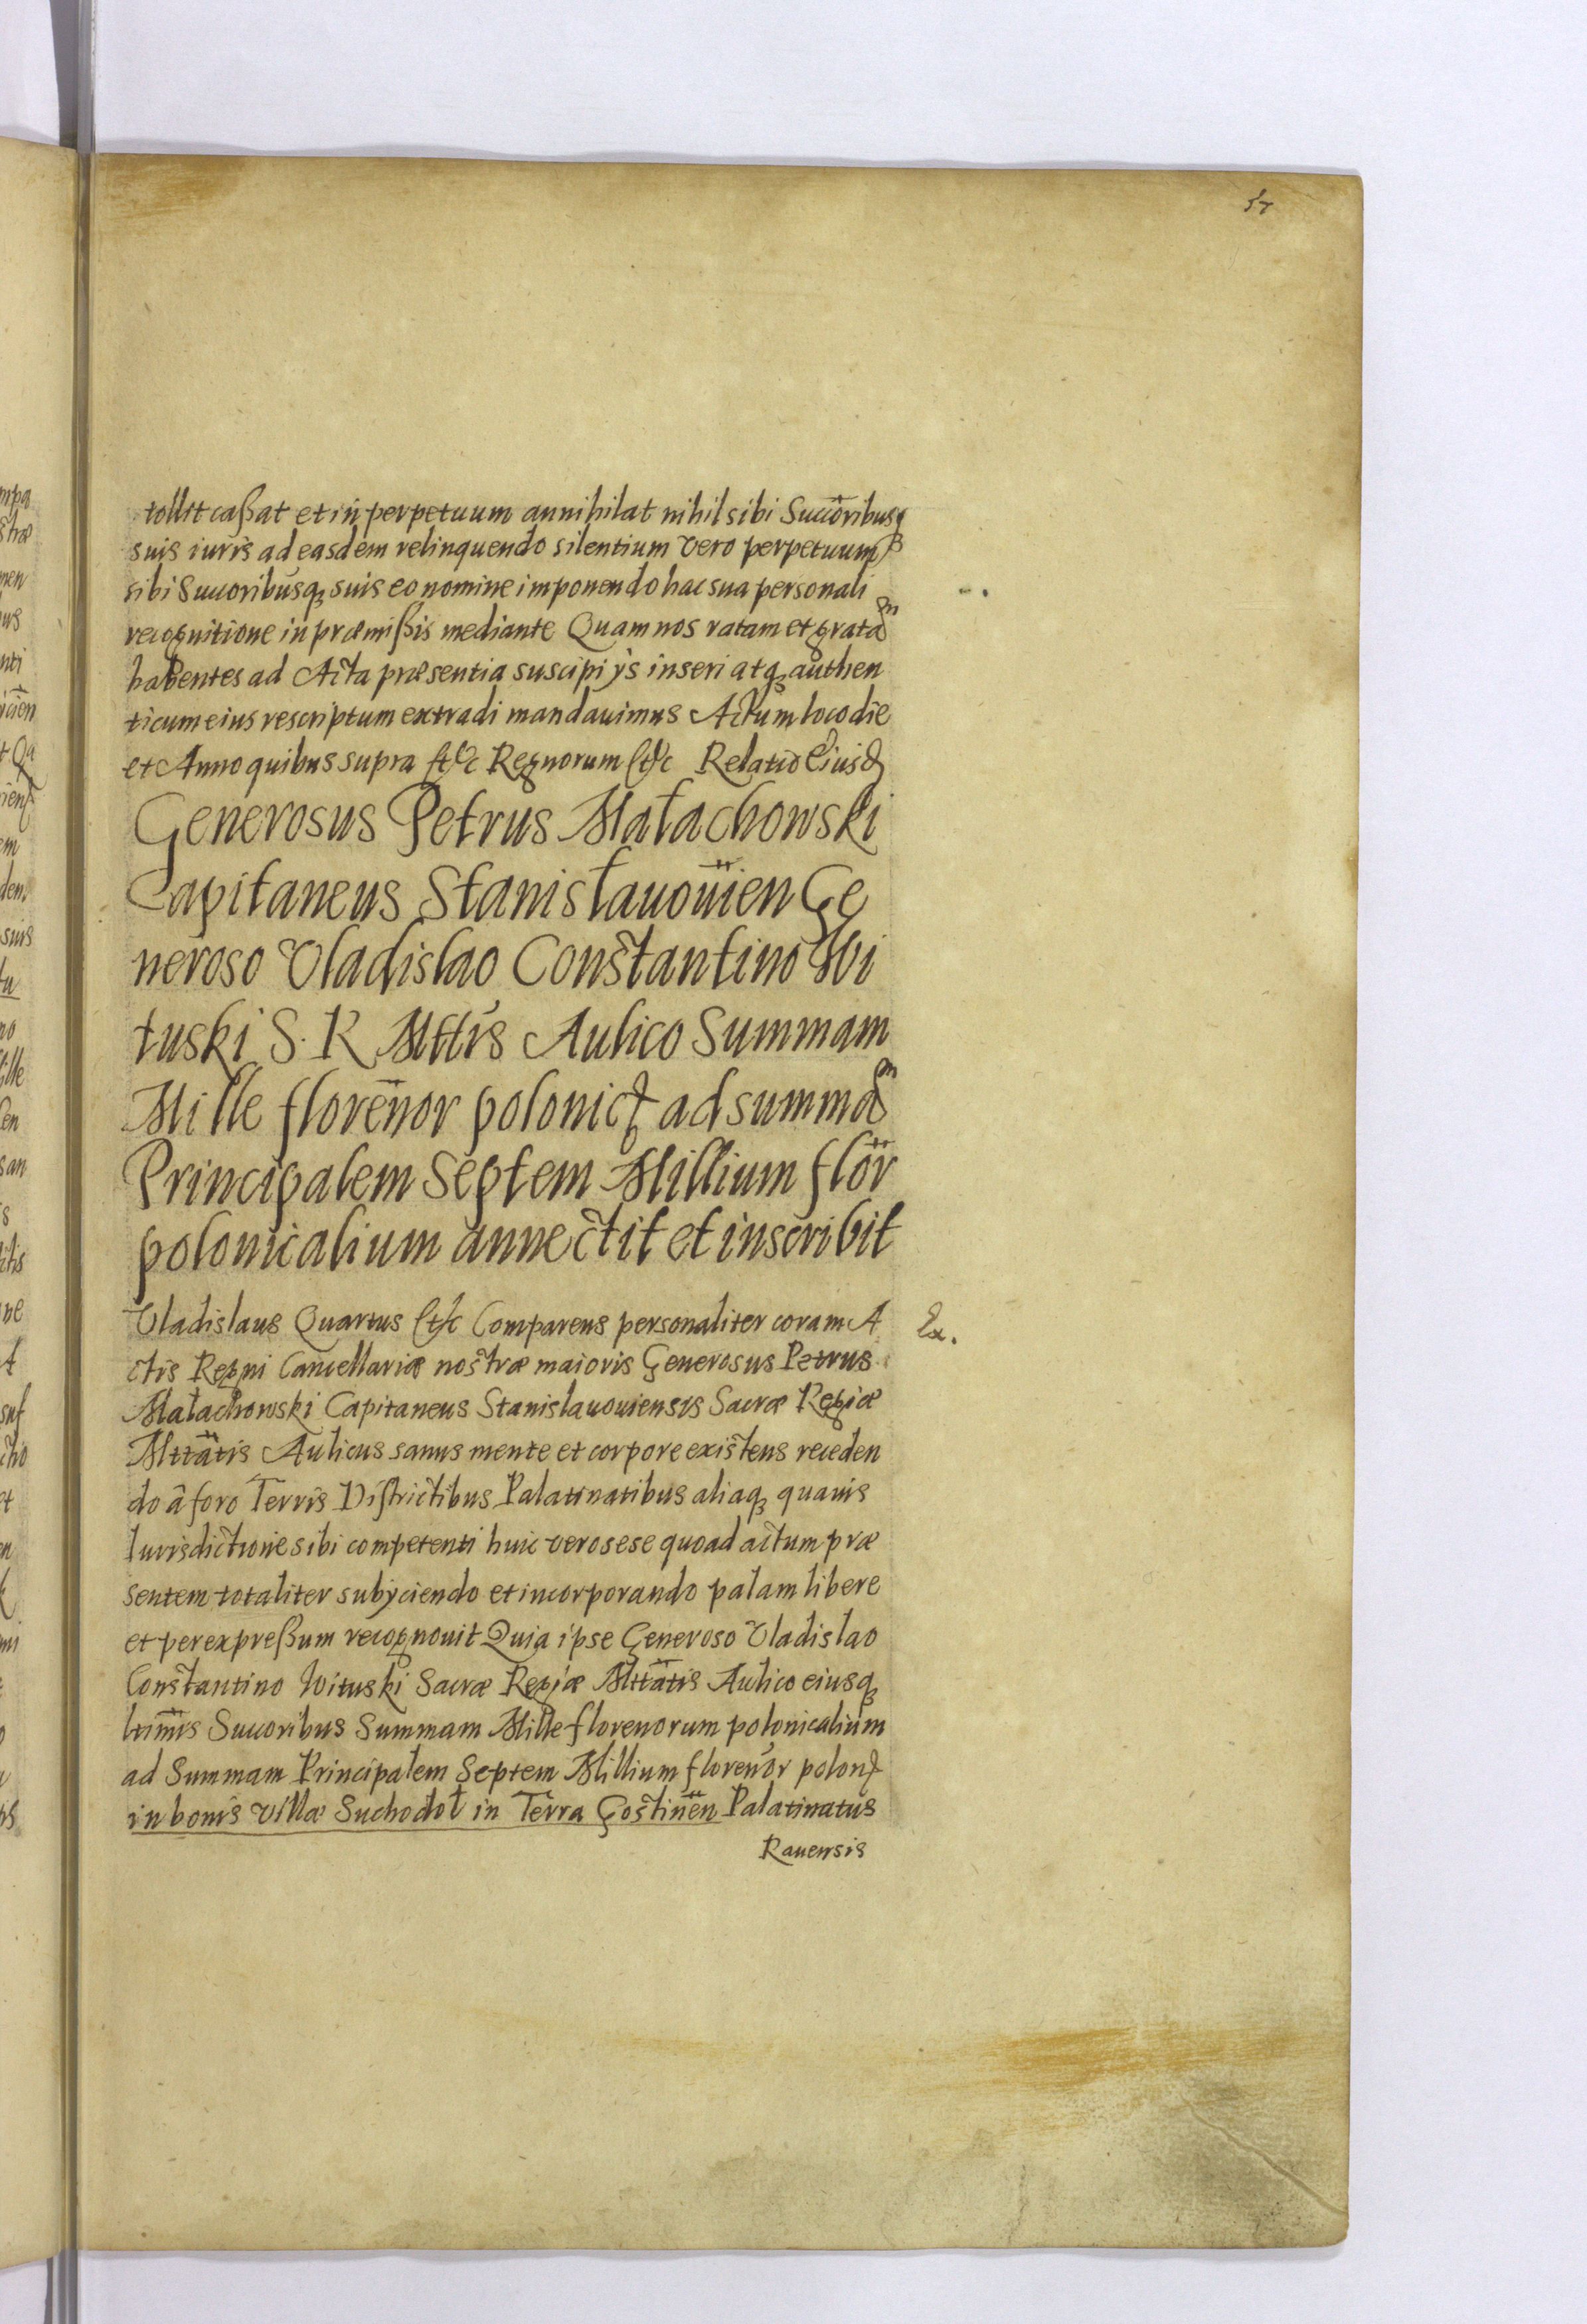 57
tollit caßat et in perpetuum annihilat nihil sibi Succoribusq
suis iuris ad easdem relinquendo silentium vero perpetuum
sibi Succoribusq suis eo nomine imponendo hac sua personali
recognitione in præmißis mediante Quam nos ratam et gratam
habentes ad Acta præsentia suscipi ÿs inseri atq authen
ticum eius rescriptum extradi mandauimus Actum loco die
et Anno quibus supra etc Regnorum etc Relatio Eiusd
Generosus Petrus Małachowski
Capitaneus Stanisławouien Ge
neroso Vladislao Constantino Wi
tuski S. R Mttis Aulico Summam
Mille florenor polonic ad summam
Principalem Septem Millium flor
polonicalium annectit et inscribit
Vladislaus Quartus etc Comparens personaliter coram A
ctis Regni Cancellariæ nostræ maioris Generosus Petrus
Małachowski Capitaneus Stanislauouiensis Sacræ Regiæ
Mttatis Aulicus sanus mente et corpore existens receden
do â foro Terris Districtibus Palatinatibus aliaq quauis
Iurisdictione sibi competenti huic vero sese quoad actum præ
sentem totaliter subÿciendo et incorporando palam libere
et per expreßum recognouit Quia ipse Generoso Vladislao
Constantino Wituski Sacræ Regiæ Mttatis Aulico eiusq
ltimis Succoribus Summam Mille florenorum polonicalium
ad Summam Principalem Septem Millium florenor polon
in bonis villæ Suchodoł in Terra Gostinen Palatinatus
Rauensis
Ex.